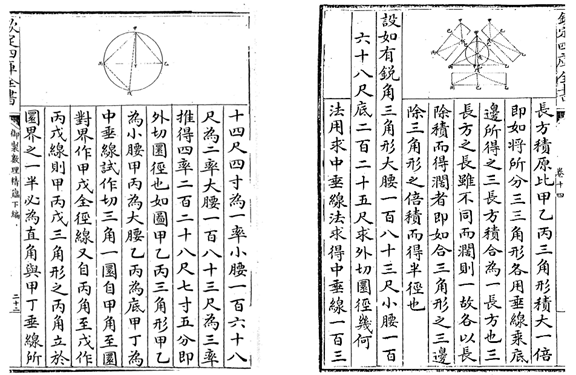 欽定四庫全書
卷十四
長方積原比甲乙丙三角形積大一倍
即如將所分三三角形各用垂線乘底
邊所得之三長方積合為一長方也三
長方之長雖不同而濶則一故各以長
除積而得濶者即如合三角形之三邊
除三角形之倍積而得半徑也
設如有鋭角三角形大腰一百八十三尺小腰一百
六十八尺底二百二十五尺求外切圜徑幾何
法用求中垂線法求得中垂線一百三
十四尺四寸為一率小腰一百六十八
尺為二率大腰一百八十三尺為三率
推得四率二百二十八尺七寸五分即
外切圜徑也如圖甲乙丙三角形甲乙
為小腰甲丙為大腰乙丙為底甲丁為
中垂線試作切三角一圜自甲角至圜
對界作甲戊全徑線又自丙角至戊作
丙戊線則甲丙戊三角形之丙角立於
圜界之一半必為直角與甲丁垂線所
欽定四庫全書
御製數理精藴下編
二十三